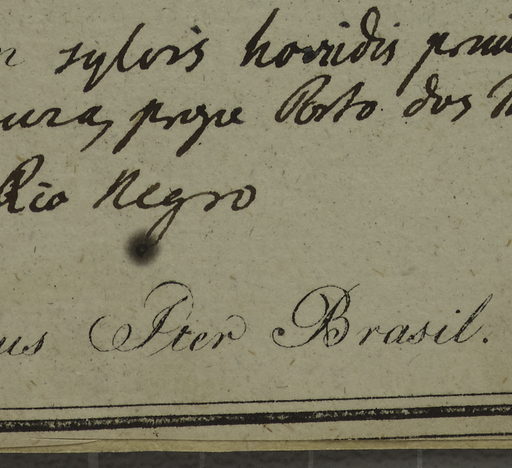 sylvis horridis
prope Porto dos
Rio Negro
Iter Brasil.